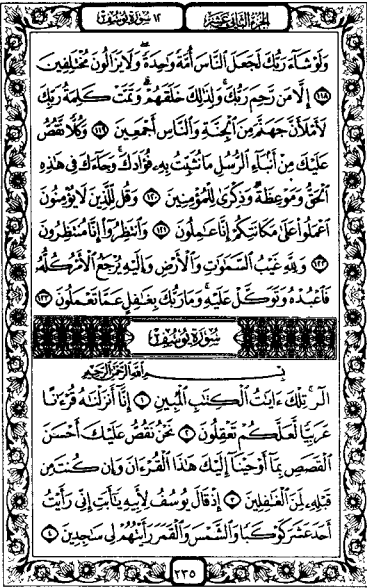 ١٢ سورة يوسف
الجزء الثاني عشر
وَلَوْ شَآءَ رَبُّكَ لَجَعَلَ ٱلنَّاسَ أُمَّةً وَٰحِدَةً ۖ وَلَا يَزَالُونَ مُخْتَلِفِينَ
﴿١١٨﴾ إِلَّا مَن رَّحِمَ رَبُّكَ ۚ وَلِذَٰلِكَ خَلَقَهُمْ ۗ وَتَمَّتْ كَلِمَةُ رَبِّكَ
لَأَمْلَأَنَّ جَهَنَّمَ مِنَ ٱلْجِنَّةِ وَٱلنَّاسِ أَجْمَعِينَ ﴿١١٩﴾ وَكُلًّا نَّقُصُّ
عَلَيْكَ مِنْ أَنۢبَآءِ ٱلرُّسُلِ مَا نُثَبِّتُ بِهِۦ فُؤَادَكَ ۚ وَجَآءَكَ فِى هَٰذِهِ
ٱلْحَقُّ وَمَوْعِظَةٌ وَذِكْرَىٰ لِلْمُؤْمِنِينَ ﴿١٢٠﴾ وَقُل لِّلَّذِينَ لَا يُؤْمِنُونَ
ٱعْمَلُوا۟ عَلَىٰ مَكَانَتِكُمْ إِنَّا عَٰمِلُونَ ﴿١٢١﴾ وَٱنتَظِرُوٓا۟ إِنَّا مُنتَظِرُونَ
﴿١٢٢﴾ وَلِلَّهِ غَيْبُ ٱلسَّمَٰوَٰتِ وَٱلْأَرْضِ وَإِلَيْهِ يُرْجَعُ ٱلْأَمْرُ كُلُّهُۥ
فَٱعْبُدْهُ وَتَوَكَّلْ عَلَيْهِ ۚ وَمَا رَبُّكَ بِغَٰفِلٍ عَمَّا تَعْمَلُونَ ﴿١٢٣﴾
سورة يوسف
بِسْمِ ٱللَّهِ ٱلرَّحْمَٰنِ ٱلرَّحِيمِ
الٓر ۚ تِلْكَ ءَايَٰتُ ٱلْكِتَٰبِ ٱلْمُبِينِ ﴿١﴾ إِنَّآ أَنزَلْنَٰهُ قُرْءَٰنًا
عَرَبِيًّا لَّعَلَّكُمْ تَعْقِلُونَ ﴿٢﴾ نَحْنُ نَقُصُّ عَلَيْكَ أَحْسَنَ
ٱلْقَصَصِ بِمَآ أَوْحَيْنَآ إِلَيْكَ هَٰذَا ٱلْقُرْءَانَ وَإِن كُنتَ مِن
قَبْلِهِۦ لَمِنَ ٱلْغَٰفِلِينَ ﴿٣﴾ إِذْ قَالَ يُوسُفُ لِأَبِيهِ يَٰٓأَبَتِ إِنِّى رَأَيْتُ
أَحَدَ عَشَرَ كَوْكَبًا وَٱلشَّمْسَ وَٱلْقَمَرَ رَأَيْتُهُمْ لِى سَٰجِدِينَ ﴿٤﴾
٢٣٥